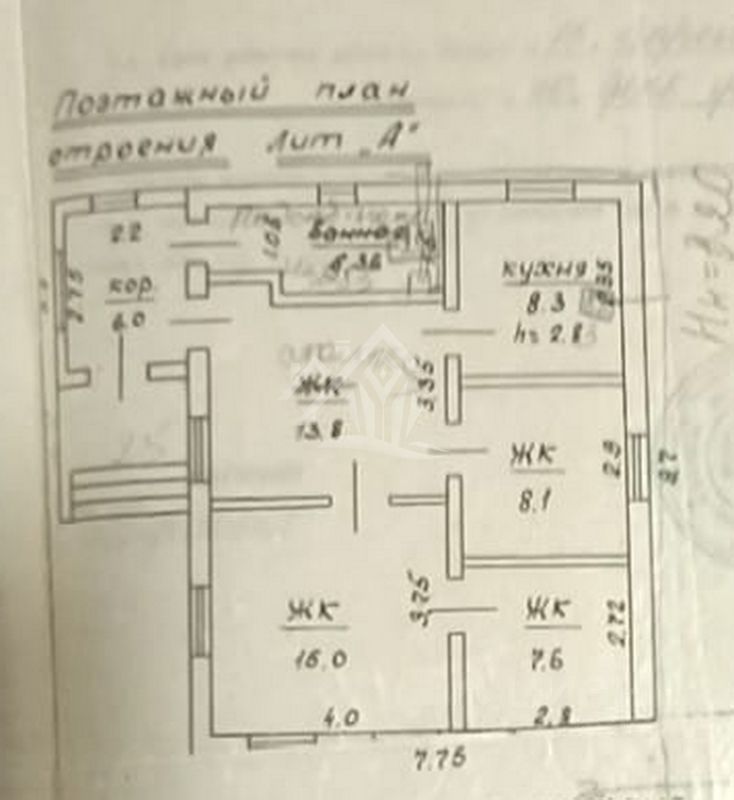 Поэтажный план
строения Лит „А"
2.2
1.08
Ванная
2.75
кор.
6.0
кухня
8.3
h= 2.8
2.95
ЖК
13.8
3.35
ЖК
8.1
2.9
9.7
ЖК
16.0
3.75
ЖК
7.6
2.72
4.0
2.8
7.75